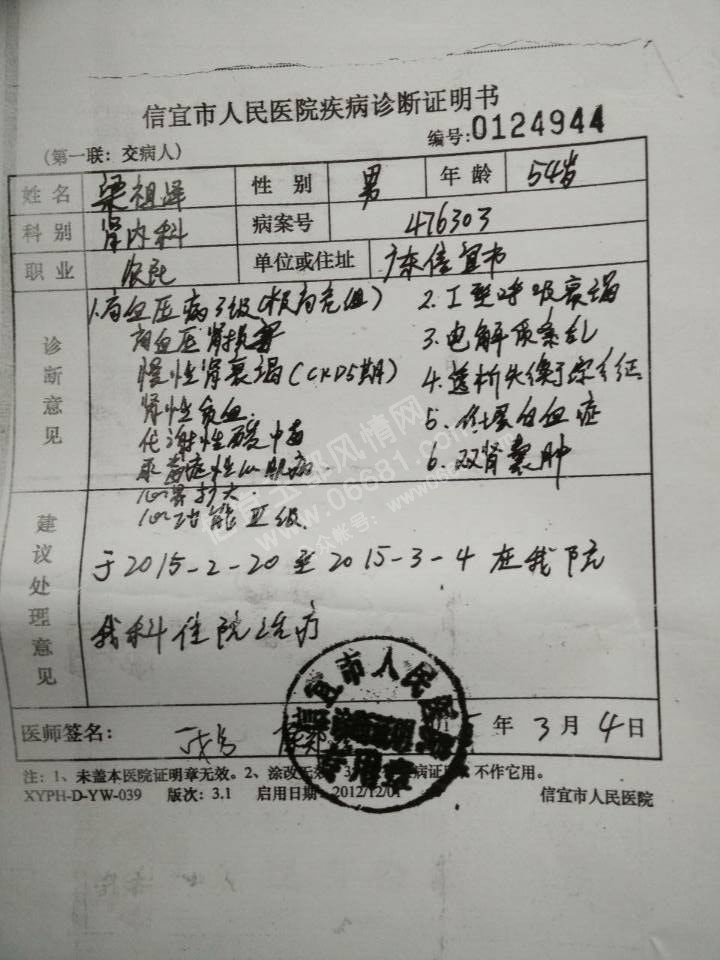 信宜市人民医院疾病诊断证明书
(第一联：交病人) 编号:0124944
姓名 梁祖泽 性别 男 年龄 54岁
科别 肾内科 病案号 476303
职业 农民 单位或住址 广东信宜市
诊断意见
1.高血压病3级(极高危组)
高血压肾损害
慢性肾衰竭(CKD5期)
肾性贫血
代谢性酸中毒
尿毒症性心肌病
心界扩大
心功能Ⅲ级
2.I型呼吸衰竭
3.电解质紊乱
4.透析失衡综合征
5.低蛋白血症
6.双肾囊肿
建议处理意见
于2015-2-20至2015-3-4在我院
我科住院治疗
医师签名：
年3月4日
信宜市人民医院
专用章
注：1、未盖本医院证明章无效。2、涂改无效 不作它用。
XYPH-D-YW-039 版次：3.1 启用日期：2012/12/01 信宜市人民医院
www.06681.com